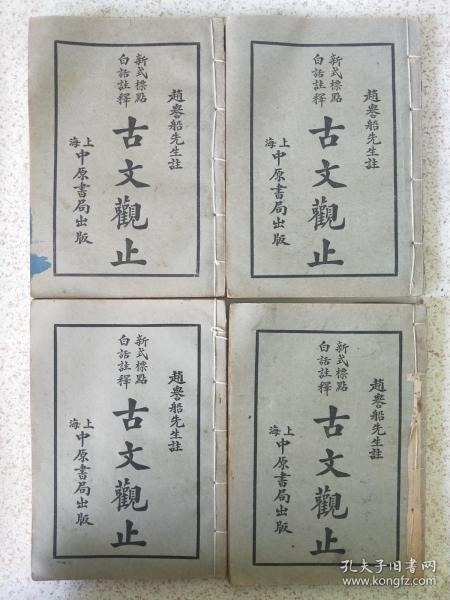 趙譽船先生註
新式標點
白話註釋
古文觀止
上海
中原書局出版
趙譽船先生註
新式標點
白話註釋
古文觀止
上海
中原書局出版
趙譽船先生註
新式標點
白話註釋
古文觀止
上海
中原書局出版
趙譽船先生註
新式標點
白話註釋
古文觀止
上海
中原書局出版
孔夫子旧书网
www.kongfz.com